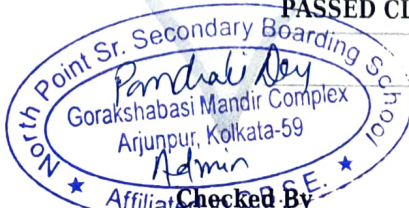 PASSED CL
North Point Sr. Secondary Boarding School
Panchali Dey
Gorakshabasi Mandir Complex
Arjunpur, Kolkata-59
Admin
Checked By